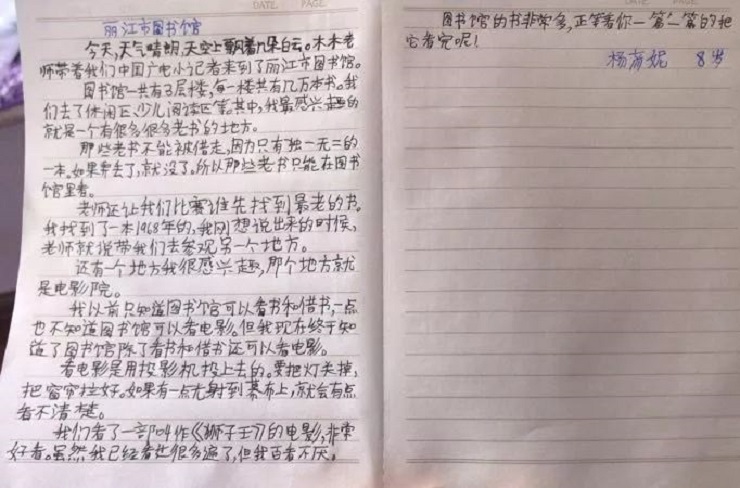 DATE PAGE
丽江市图书馆
今天,天气晴朗,天空上飘着几朵白云。木木老
师带着我们中国广电小记者来到了丽江市图书馆。
图书馆一共有3层楼,每一楼共有几万本书。我
们去了休闲区、少儿阅读区等。其中,我最感兴趣的
就是一个有很多很多老书的地方。
那些老书不能被借走,因为只有独一无二的
一本。如果弄丢了,就没了。所以那些老书只能在图书
馆里看。
老师还让我们比赛谁先找到最老的书。
我找到了一本1968年的,我刚想说出来的时候,
老师就说带我们去参观另一个地方。
还有一个地方我很感兴趣,那个地方就
是电影院。
我以前只知道图书馆可以看书和借书,一点
也不知道图书馆可以看电影。但我现在终于知
道了图书馆除了看书和借书还可以看电影。
看电影是用投影机投上去的。要把灯关掉,
把窗帘拉好。如果有一点光射到幕布上,就会有点
看不清楚。
我们看了一部叫作《狮子王》的电影,非常
好看。虽然我已经看过很多遍了,但我百看不厌。
DATE PAGE
图书馆的书非常多,正等着你一篇一篇的把
它看完呢!
8岁